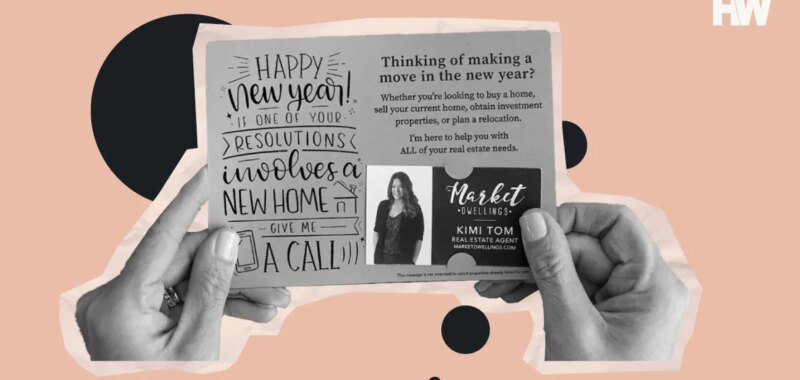 HW
HAPPY
new year!
IF ONE OF YOUR
RESOLUTIONS
involves a
NEW HOME
GIVE ME
A CALL
Thinking of making a
move in the new year?
Whether you're looking to buy a home,
sell your current home, obtain investment
properties, or plan a relocation.
I'm here to help you with
ALL of your real estate needs.
Market
•DWELLINGS•
KIMI TOM
REAL ESTATE AGENT
MARKETDWELLINGS.COM
This message is not intended to solicit properties already listed for